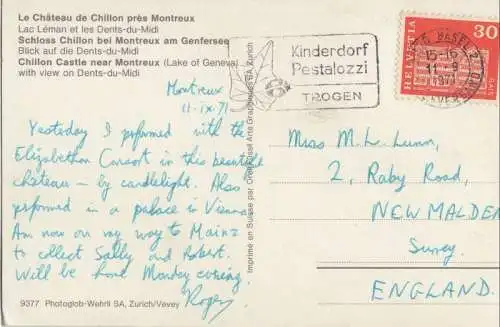 Le Château de Chillon près Montreux
Lac Léman et les Dents-du-Midi
Schloss Chillon bei Montreux am Genfersee
Blick auf die Dents-du-Midi
Chillon Castle near Montreux (Lake of Geneva)
with view on Dents-du-Midi
Montreux
11.ix.71
Yesterday I performed with the
Elizabethan Consort in this beautiful
château – by candlelight. Also
performed in a palace in Vienna
Am now on my way to Mainz
to collect Sally and Robert.
Will be home Monday coming.
Roger
9377 Photoglob-Wehrli SA, Zürich/Vevey
Imprimé en Suisse par Orell Füssli Arts Graphiques SA Zürich
Kinderdorf
Pestalozzi
TROGEN
BASEL
15-16
HELVETIA
30
Miss M. L. Lunn,
2, Raby Road,
NEW MALDEN
Surrey.
ENGLAND.